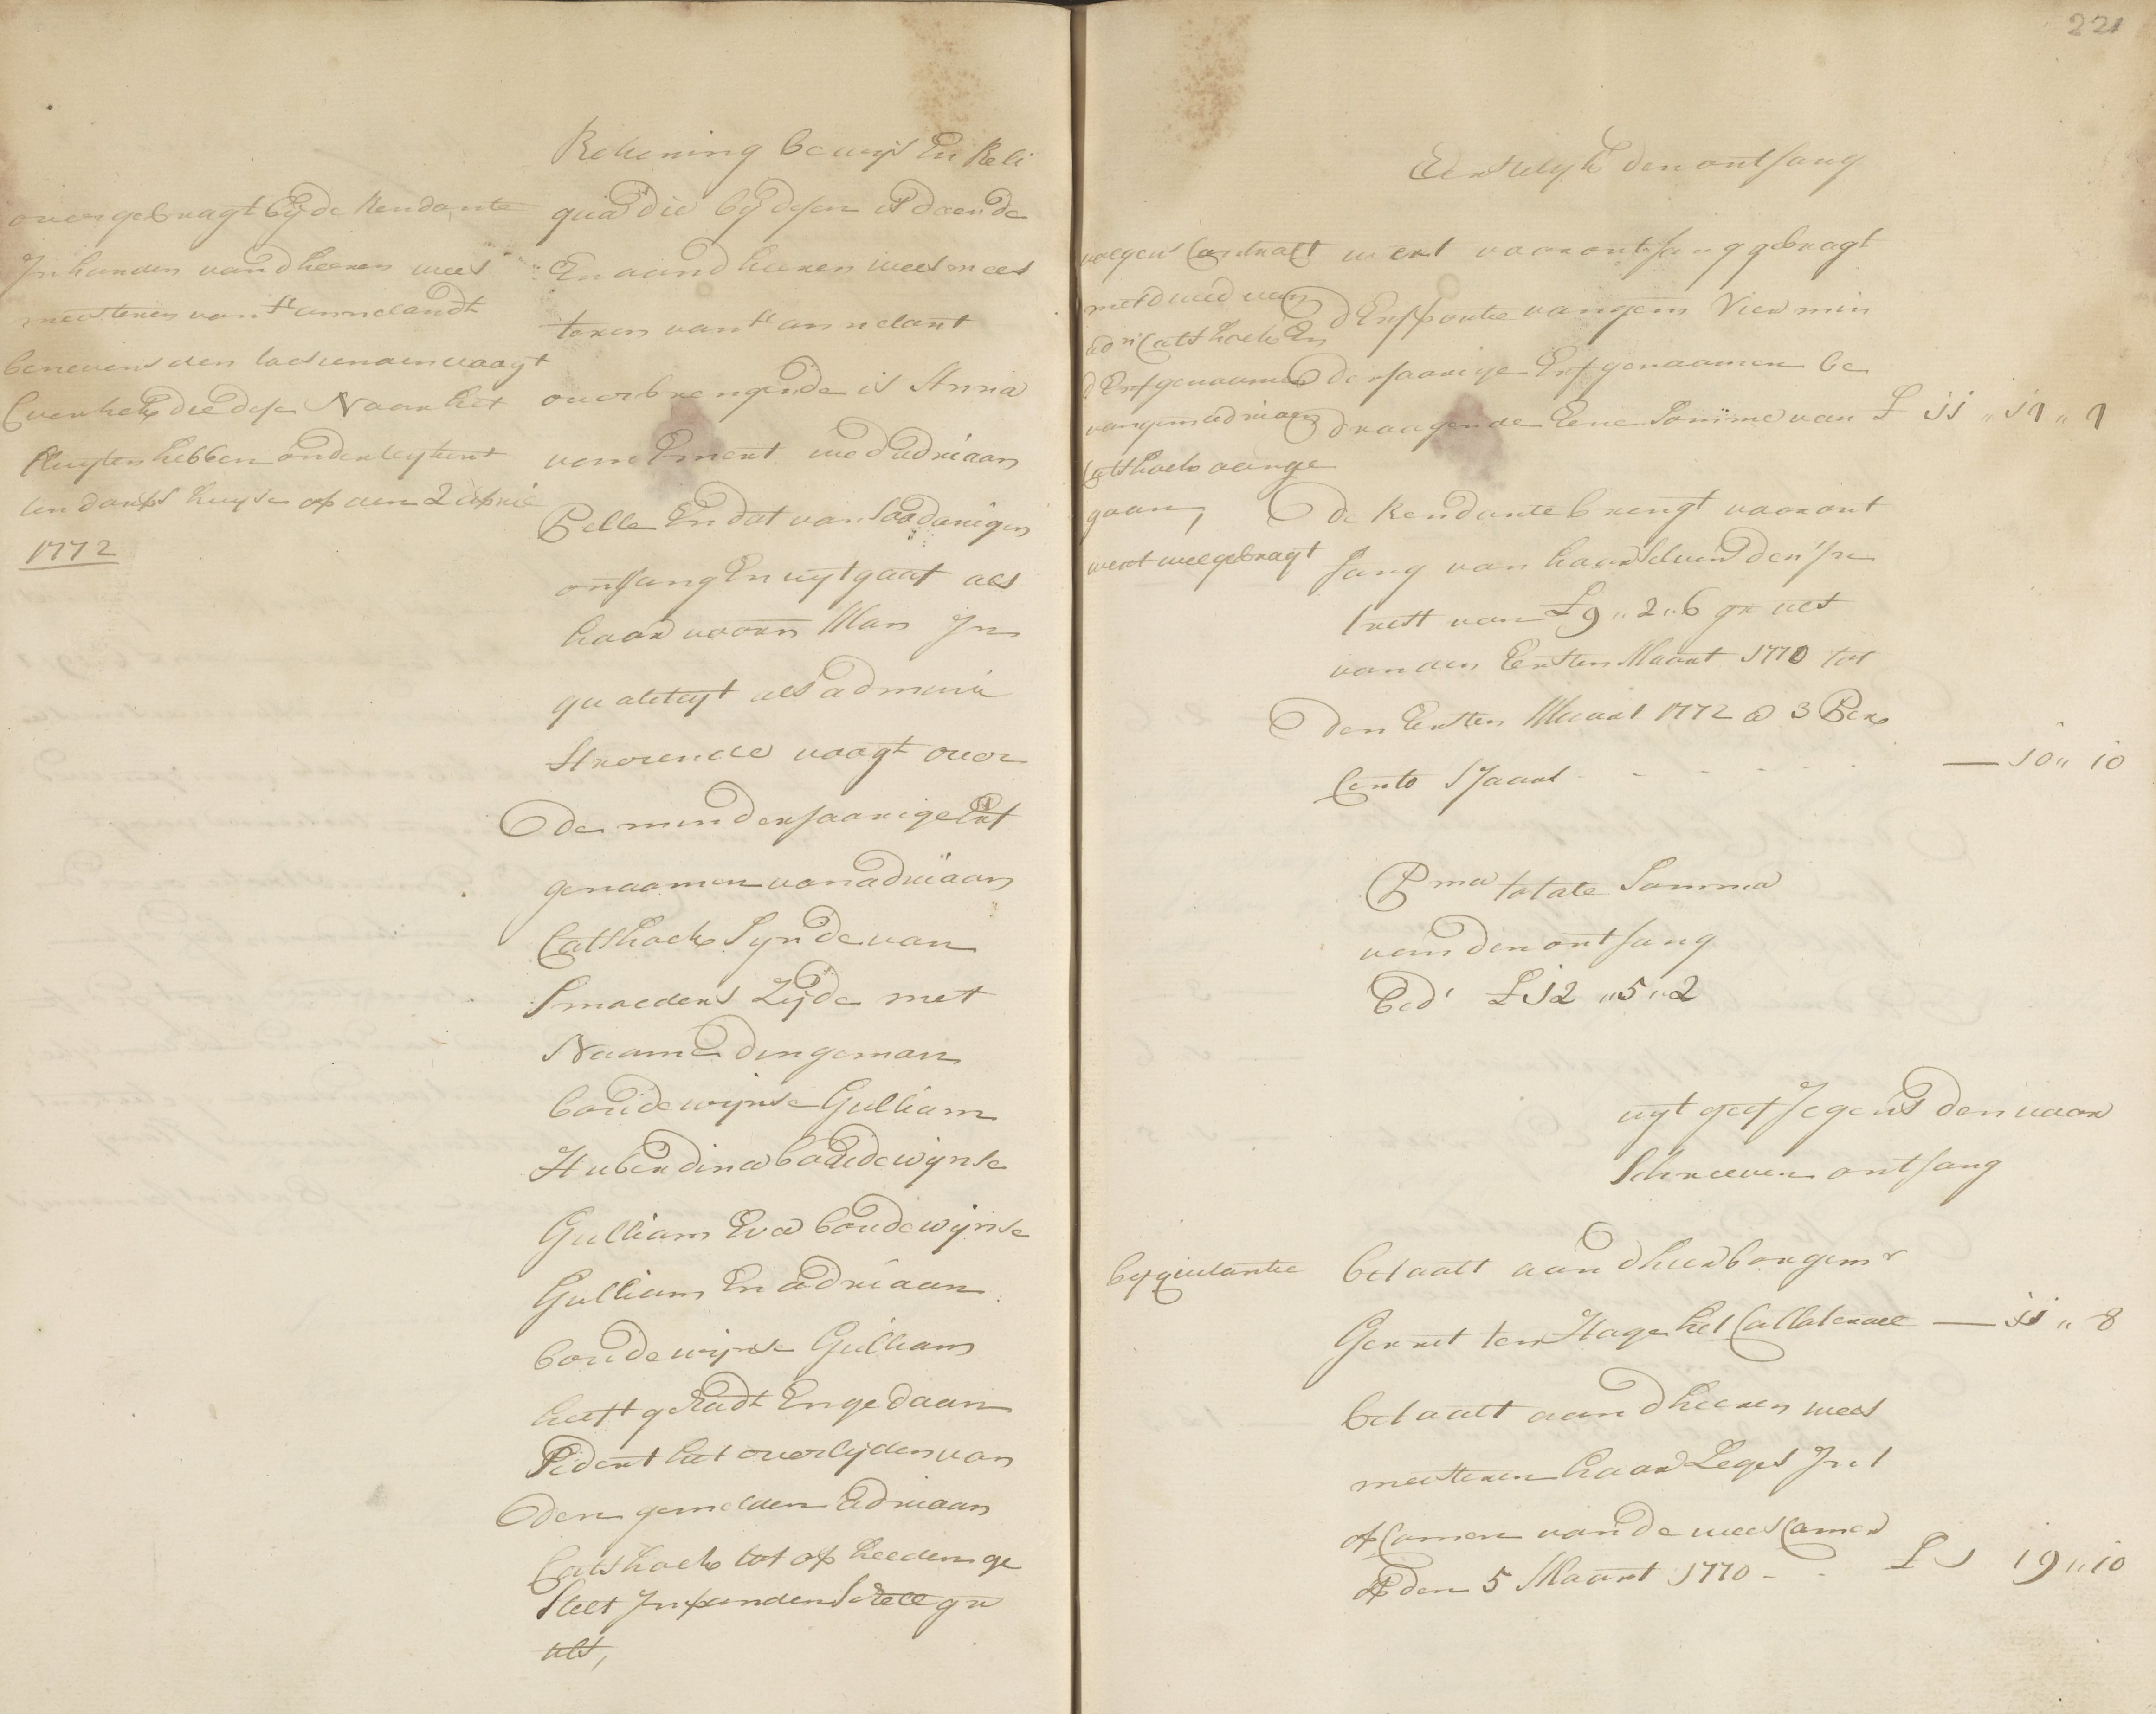 overgebragt bÿ de Rendante
In handen van d heeren wees
meesteren van t' annelandt
benevens den toesienden voogt
Cverhek die dese Naar het
sluyten hebben onderteykent
ten dorps huyse op den 2 april
1772
Rekening bewijs En Reli
qua die bÿ desen is doende
En aan d heeren wees mees
teren van t' annelant
overbrengende is Anna
van Ement wed adriaan
Pelle En dat van soodanigen
ontfang En uytgaaf als
haar voorn Man In
qualiteyt als admini
strerende voogt over
de minderjaarige Erf
genaamen van adriaan
Catshoek Synde van
Smoeders Zÿde met
Naame dingeman
boudewijnse Gulliam
Huberdina boudewijnse
Gulliam Eva boudewijnse
Gulliam En adriaan
boudewijnse Gulliam
heeft gehadt En gedaan
Sedert het overlijden van
den gemelden Adriaan
Catshoek tot op heeden ge
stelt In ponden Schell gr
vls,
221
Eerstelyk den ontfang
volgens Contract
met d wed van
adrn Catshoek En
d Erfgenaamen
van gem adriaan
Catshoek aange
gaan,
wert voor ontfang gebragt
d Erfportie van gem Vier min
derjaarige Erfgenaamen be
draagende Eene Somme van £ 11 " 14 " 4
wert weegebragt
de Rendante brengt voor ont
fang van haar selven den In
trest van £ 9 " 2 " 6 gr vls
van den Eersten Maart 1770 tot
den Eersten Maart 1772 a 3 Per
Cento S Jaars - - - - - — 10 " 10
Pma totale Somma
van den ontfang
Bedt £ 12 " 5 " 2
uytgeef Jegens den voor
Schreeven ontfang
by quitantie
betaalt aan d heer borgemr
Gerrit ten Hage het Collaterael — 11 " 8
betaalt aan d heeren wees
meesteren haar Leges In t
opcomen van de weescamer
op den 5 Maart 1770 - - £ 1 19 " 10